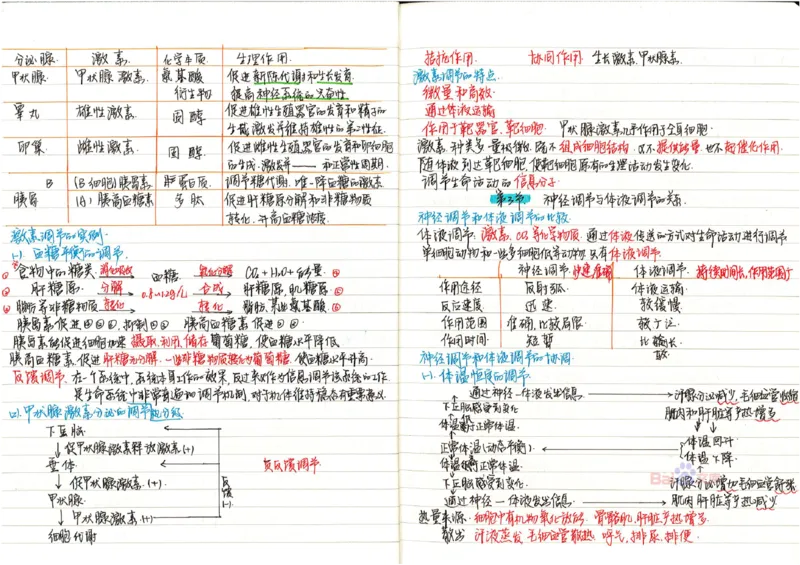 分泌腺 激素 化学本质 生理作用
甲状腺 甲状腺激素 氨基酸衍生物 促进新陈代谢和生长发育
提高神经系统的兴奋性
睾丸 雄性激素 固醇 促进雄性生殖器官的发育和精子的
生成 激发并维持雄性的第二性征
卵巢 雌性激素 固醇 促进雌性生殖器官的发育和卵细胞
的生成 激发并—— 和正常性周期
胰岛 B (B细胞)胰岛素 蛋白质 调节糖代谢,唯一降血糖的激素
(A)胰高血糖素 多肽 促进肝糖原分解和非糖物质
转化,升高血糖浓度
激素调节的实例
(一).血糖平衡的调节
①食物中的糖类 血糖 氧化分解 CO₂+H₂O+能量 ④
②肝糖原 分解 0.8~1.2g/L 合成 肝糖原,肌糖原 ⑤
③脂肪等非糖物质 转化 转化 脂肪,某些氨基酸 ⑥
胰岛素能促进组织细胞加速摄取,利用,储存葡萄糖,使血糖水平降低
胰高血糖素促进肝糖元分解,一些非糖物质转化为葡萄糖,使血糖水平升高
反馈调节.在一个系统中,系统本身工作的效果,反过来又作为信息调节该系统的工作
是生命系统中非常普遍的调节机制,对于机体维持稳态有重要意义
(二).甲状腺激素分泌的调节
下丘脑
↓促甲状腺激素释放激素(+)
垂体 负反馈调节
↓促甲状腺激素.(+) 反馈(-)
甲状腺
↓甲状腺激素(+)
细胞代谢
拮抗作用 协同作用 生长激素,甲状腺素
激素调节的特点
微量和高效
通过体液运输
作用于靶器官,靶细胞 甲状腺激素几乎作用于全身细胞
激素种类多,量极微,既不组成细胞结构,又不提供能量,也不起催化作用
随体液到达靶细胞,使靶细胞原有的生理活动发生变化
调节生命活动的信息分子
第3节 神经调节与体液调节的关系
神经调节和体液调节的比较
体液调节 激素,CO₂等化学物质,通过体液传送的方式对生命活动进行调节
单细胞动物和一些多细胞低等动物只有体液调节
神经调节 快速准确 体液调节 持续时间长,作用范围广
作用途径 反射弧 体液运输
反应速度 迅速 较缓慢
作用范围 准确,比较局限 较广泛
作用时间 短暂 比较长
神经调节和体液调节的协调
(一).体温恒定的调节
通过神经—体液发出信息 汗腺分泌减少,毛细血管收缩
下丘脑感受到变化 肌肉和肝脏等产热增多
体温低于正常体温
正常体温(动态平衡) 体温回升
体温高于正常体温 体温下降
下丘脑感受到变化 汗腺分泌增加,毛细血管舒张
通过神经—体液发出信息 肌肉肝脏等产热减少
热量来源 细胞中有机物氧化放能 骨骼肌,肝脏产热增多
散出 汗液蒸发 毛细血管散热 呼气,排尿,排便